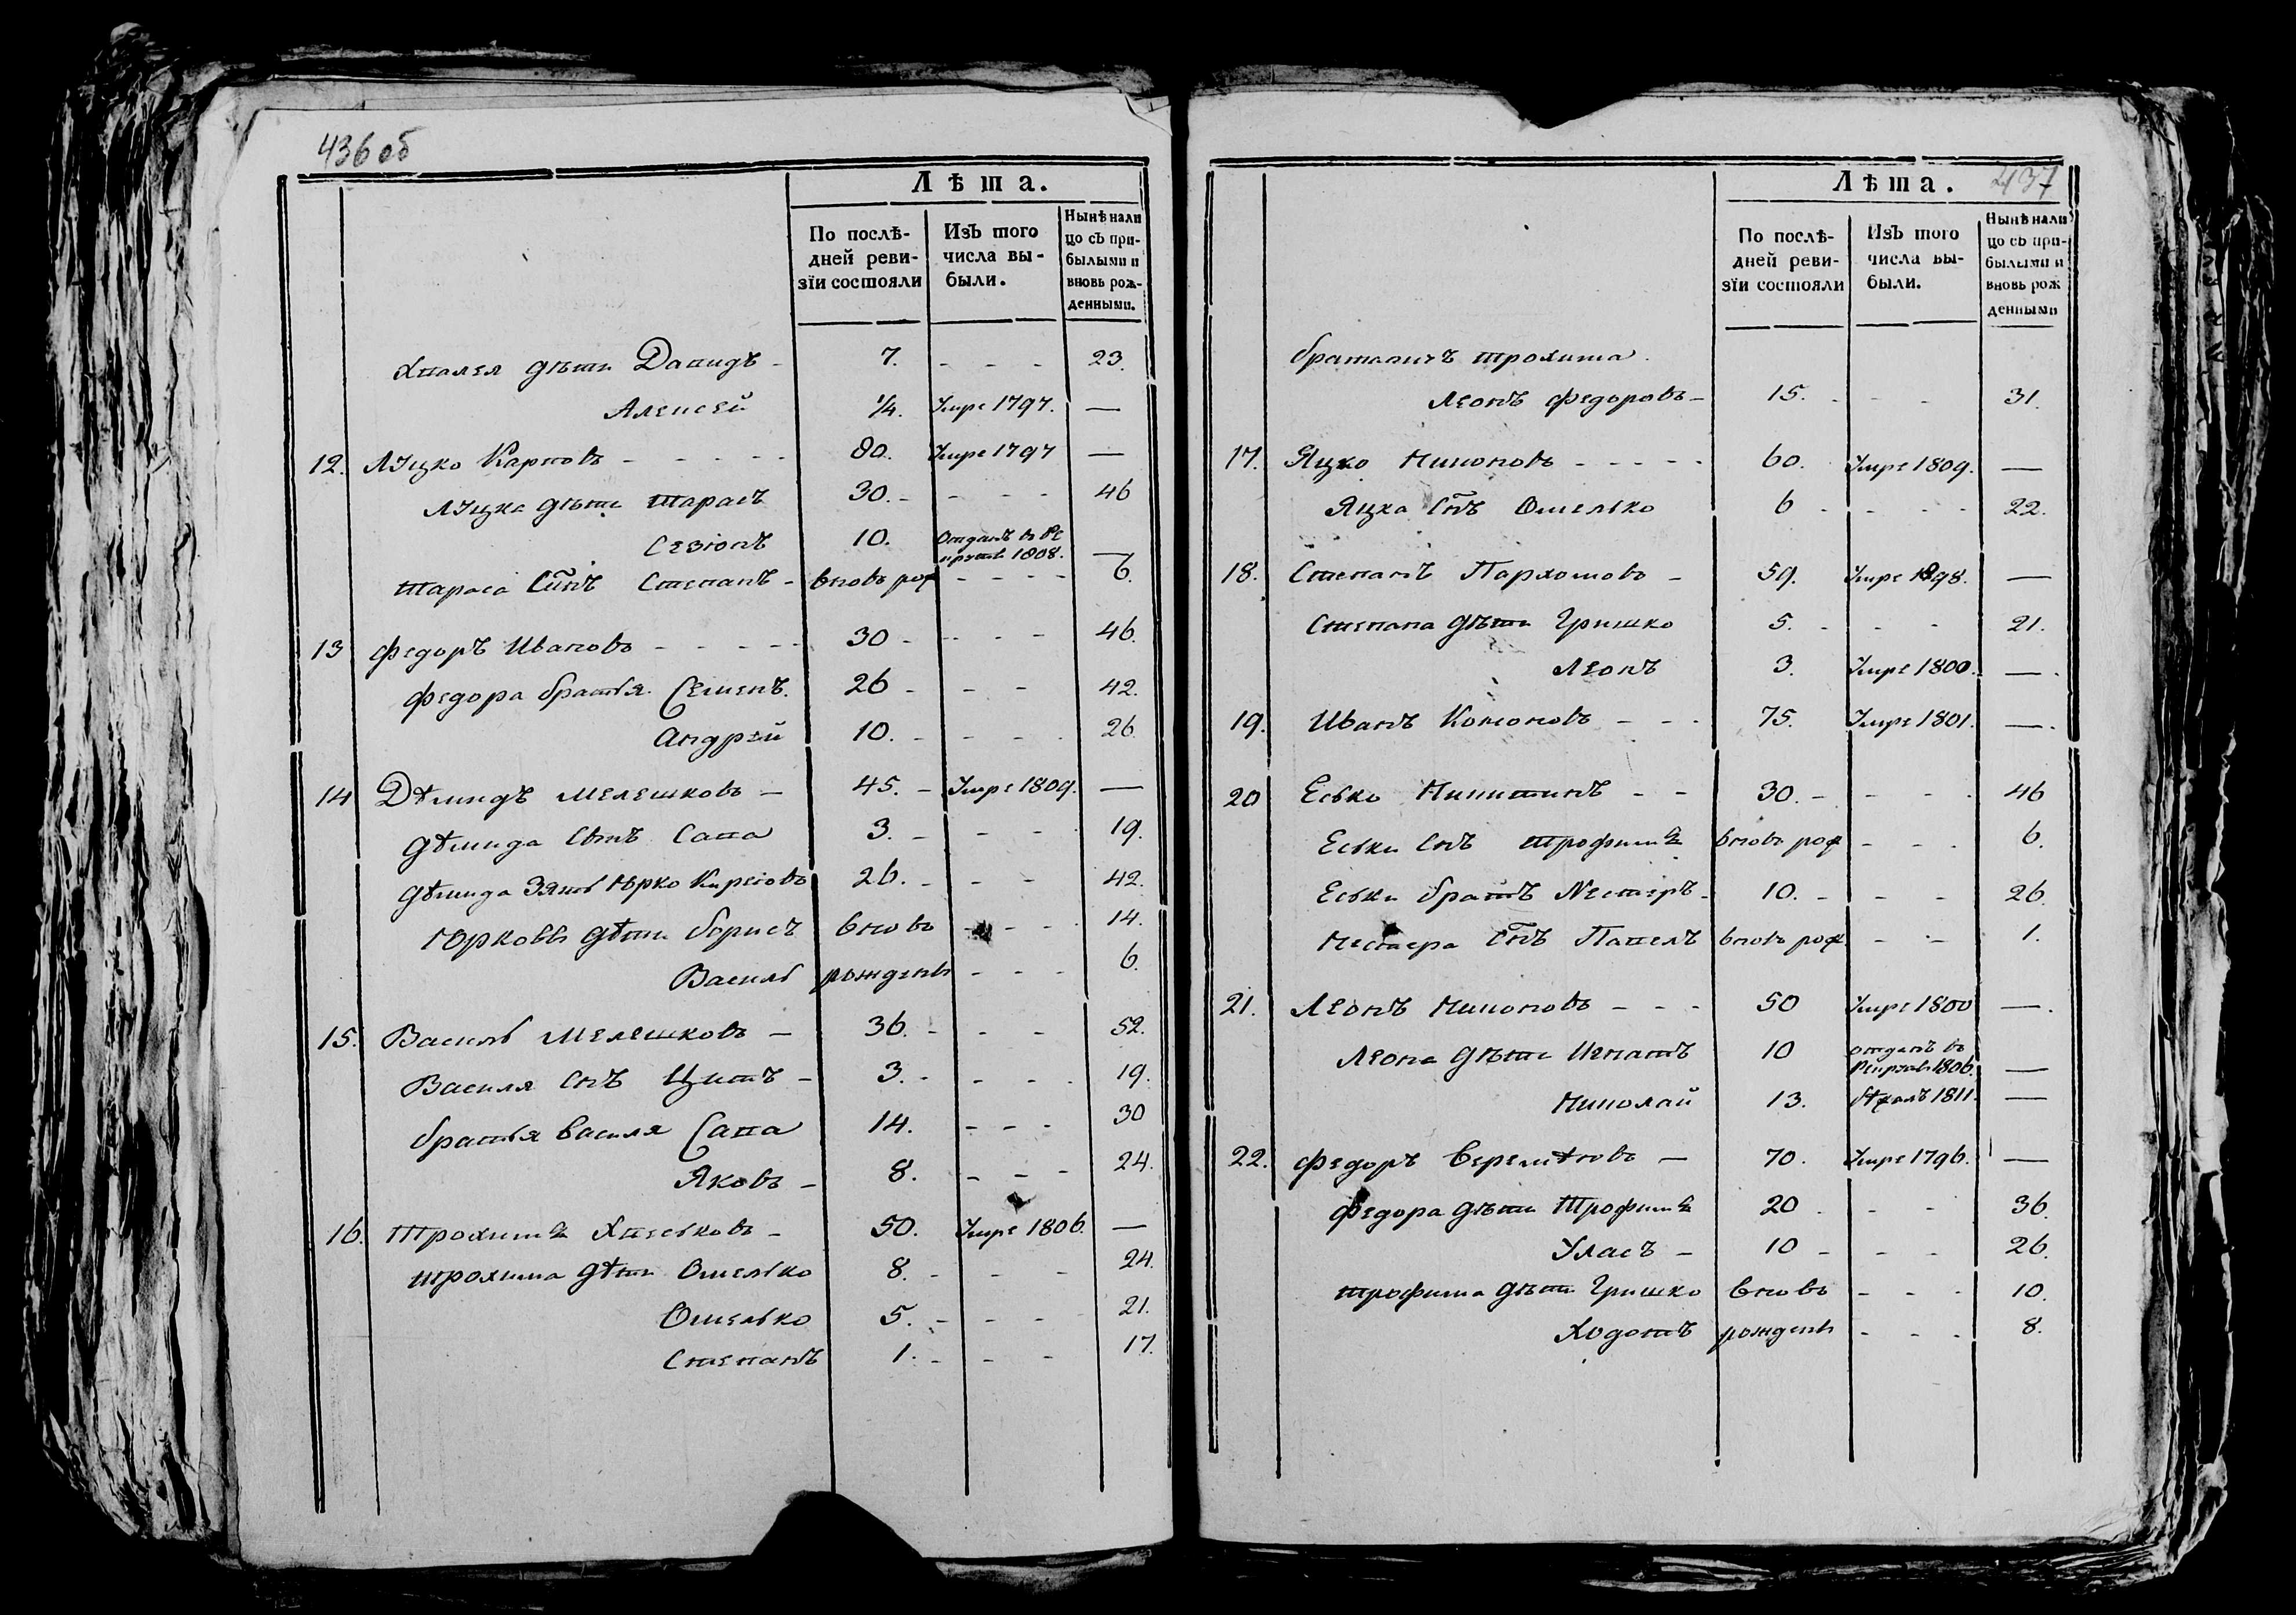 436 об
Лѣта.
По послѣ-
дней реви-
зїи состояли
Изъ того
числа вы-
были.
Нынѣ нали
цо съ при-
былыми и
вновь рож-
денными.
дѣти Давидъ - 7. - - - 23.
Алексей 1/4. Умре 1797. —
12. Яцко Карповъ - - - - - 80. Умре 1797 —
Яцка дѣти Тарасъ 30. - - - - 46
10. Отданъ в ре
крутъ 1808. —
Тараса Сынъ Степанъ - вновь рож - - - - 6.
13 Федоръ Ивановъ - - - - - 30 - - - - 46.
Федора братья Семенъ. 26 - - - 42.
Андрѣй 10. - - - - 26.
14 Дѣмидъ Мелешковъ — 45. - Умре 1809. —
Дѣмида Сынъ Сава 3. - - - 19.
Дѣмида Зять Юрко 26. - - - 42.
Юрковы дѣти Борисъ вновь - - - 14.
Василь рождены - - - 6.
15. Василь Мелешковъ — 36. - - - 52.
Василя Снъ Титъ - 3. - - - - 19.
братья Василя Сава 14. - - - 30
Яковъ - 8. - - - 24.
16. Трохимъ Хвеськовъ - 50. Умре 1806. —
Трохима дѣти Омелько 8. - - - 24.
Омелько 5. - - - 21.
Степанъ 1. - - - 17.
437
Лѣта.
По послѣ-
дней реви-
зїи состояли
Изъ того
числа вы-
были.
Нынѣ нали
цо съ при-
былыми и
вновь рож
денными
братаничъ Трохима
Леонъ Федоровъ - 15. - - - 31.
17. Яцко Никоновъ - - - - - 60. Умре 1809. —
Яцка Снъ Омелько 6 - - - - 22.
18. Степанъ Пархомовъ - 59. Умре 1798. —
Степана дѣти Гришко 5. - - - 21.
Леонъ 3. Умре 1800. —
19. Иванъ Кононовъ - - - 75. Умре 1801. —
20 Еско Никитинъ - - 30. - - - - 46
Еськи Снъ Трофимъ вновь рож - - - 6.
Еськи братъ Нестеръ - 10. - - - 26.
Нестера Снъ Павелъ вновь рож - - - 1.
21. Леонъ Никоновъ - - - 50 Умре 1800 —
Леона дѣти Игнатъ 10 отданъ въ
Рекруты 1806. —
Николай 13. бѣжалъ 1811. —
22. Федоръ Веремѣевъ — 70. Умре 1796. —
Федора дѣти Трофимъ 20 - - - 36.
Уласъ - 10 - - - 26.
Трофима дѣти Гришко вновь - - - 10.
Ходотъ рождены - - - 8.